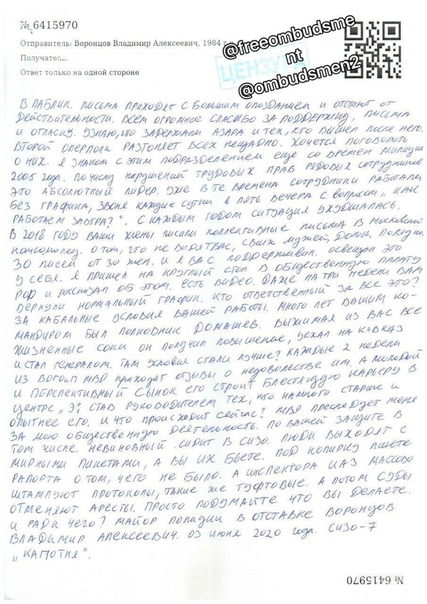 № 6415970
Отправитель: Воронцов Владимир Алексеевич, 1984 г
Получате
Ответ только на одной стороне
@freeombudsme
nt
@ombudsmen2
ЦЕНЗУ
В паблик письма приходят с большим опозданием и отстают от
действительности. Всем огромное спасибо за поддержку, письма
и огласку. Узнаю, что задержали Азара и тех, кто вышел после него.
Второй оперполк разгоняет всех нещадно. Хочется поговорить
о них. Я знаком с этим подразделением ещё со времён милиции
2005 года. По числу нарушений трудовых прав рядовых сотрудников
это абсолютный лидер. Уже в те времена сотрудники работали
без графика, звоня каждые сутки в пять вечера с вопросом "как
работаем завтра?". С каждым годом ситуация ухудшалась.
В 2018 году ваши жёны писали коллективные письма в Московский
комсомолец. О том, что не видят вас, своих мужей, дома. Полтины
30 писем от 30 жён. И я вас поддерживал. Освещал это
у себя. Я пришёл на круглый стол в Общественную палату
РФ и рассказал об этом. Есть видео. Даже на три недели вам
вернули нормальный график. Кто ответственный за все это?
За кабальные условия вашей работы. Много лет вашим ко-
мандиром был полковник Домашев. Выжимая из вас все
жизненные соки он получил повышение, уехал на Кавказ
и стал генералом. Там условия стали лучше? Каждые 2 недели
из ВОГОиП МВД приходят отзывы о недовольстве им. А молодой
и перспективный сынок его строит блестящую карьеру в
центре "Э", став руководителем тех, кто намного старше и
опытнее его. И что происходит сейчас? МВД преследует меня
за мою общественную деятельность. По вашей защите в
том числе. Невиновный сидит в СИЗО. Люди выходят с
мирными пикетами, а вы их бьете. Под копирку пишете
рапорта о том, чего не было. А инспектора ИАЗ массово
штампуют протоколы, такие же туфтовые. А потом суды
отменяют аресты. Просто подумайте что вы делаете.
И ради чего? Майор полиции в отставке Воронцов
Владимир Алексеевич. 03 июня 2020 года. СИЗО-7
"Капотня".
№ 6415970